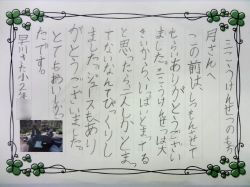 ニこうけんせつの
月さんへ
この前は、しつもんさせて
もらいありがとうござい
ました。ニこうけんせつは大
きいから、いっぱいとまってる
と思ったら二人しかとまっ
てないなんてびっくりし
ました。ジュースもあり
がとうございました。
とてもおいしかっ
たです。
早川きた小2年